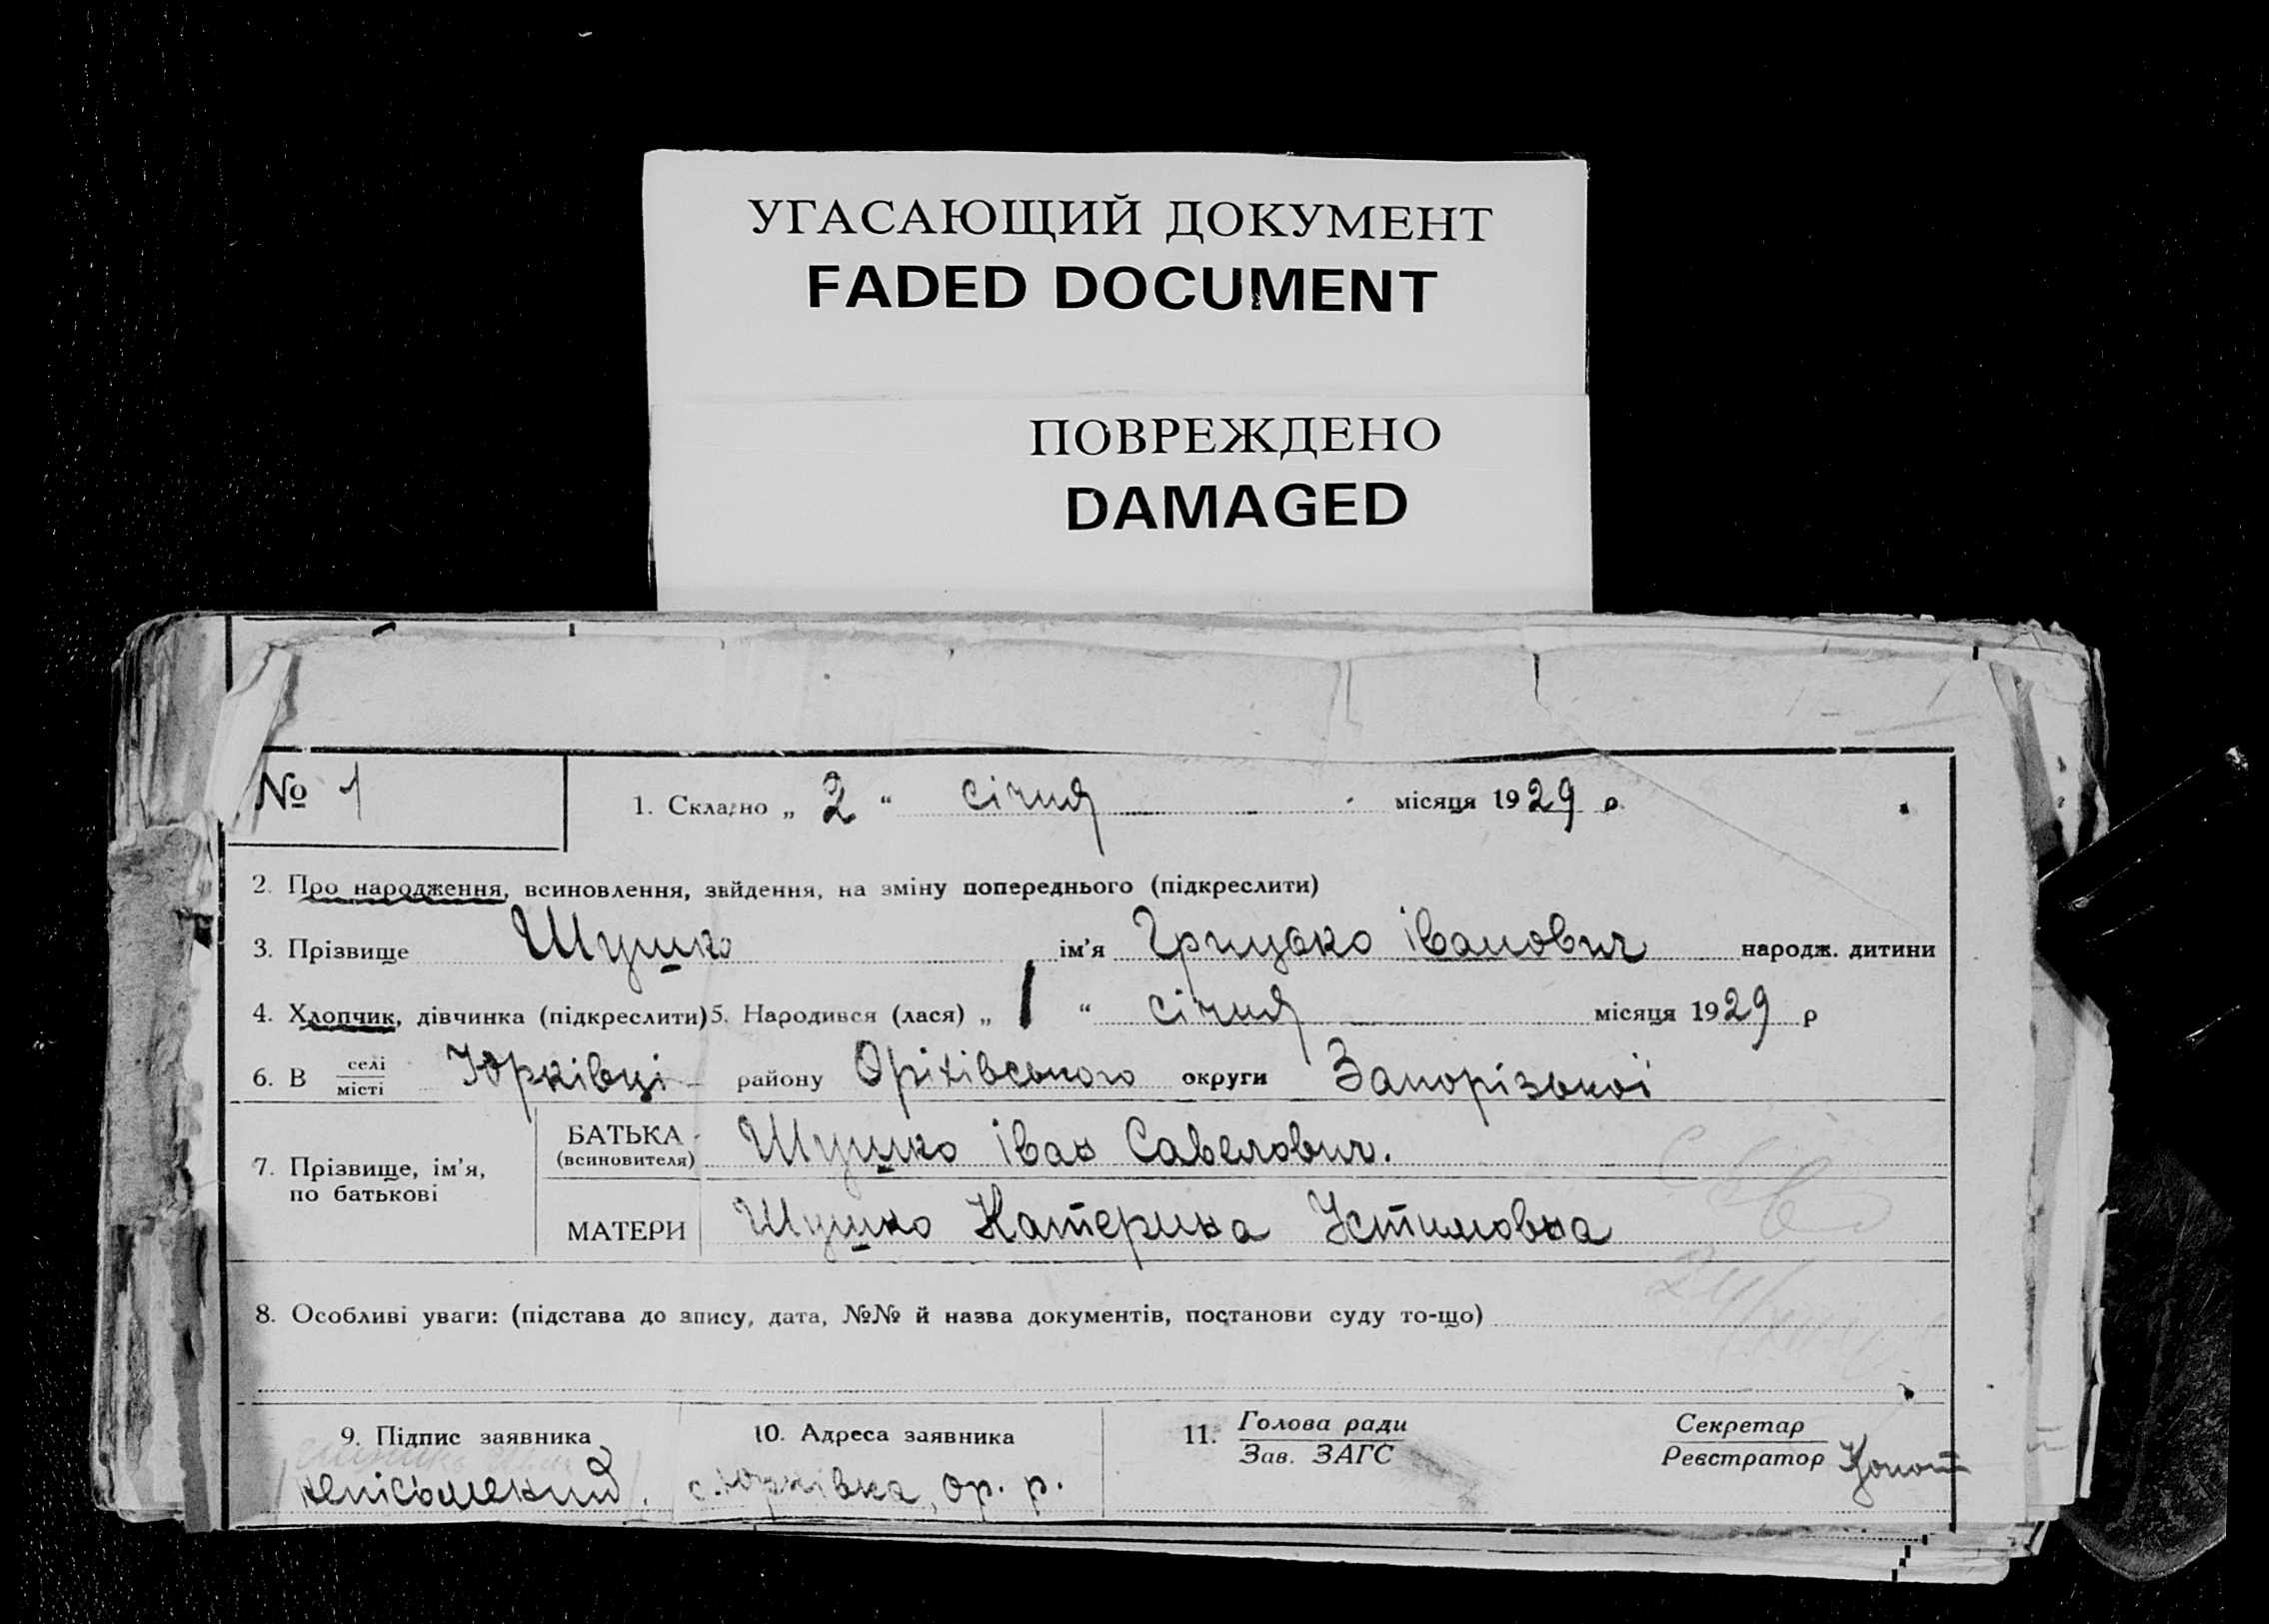 УГАСАЮЩИЙ ДОКУМЕНТ
FADED DOCUMENT
ПОВРЕЖДЕНО
DAMAGED
№ 1
1. Складно „ 2 “ січня місяця 1929 р.
2. Про народження, всиновлення, знайдення, на зміну попереднього (підкреслити)
3. Прізвище Шушко ім’я Грицько Іванович народж. дитини
4. Хлопчик, дівчинка (підкреслити) 5. Народився (лася) „ 1 “ січня місяця 1929 р
6. В селі/місті Юрківці району Оріхівського округи Запорізької
7. Прізвище, ім’я, по батькові
БАТЬКА (всиновителя) Шушко Іван Савелович.
МАТЕРИ Шушко Катерина Устимовна
8. Особливі уваги: (підстава до запису, дата, №№ й назва документів, постанови суду то-що)
9. Підпис заявника
непісьмений.
10. Адреса заявника
с. Юрківка, ор. р.
11. Голова ради
Зав. ЗАГС
Секретар
Реєстратор